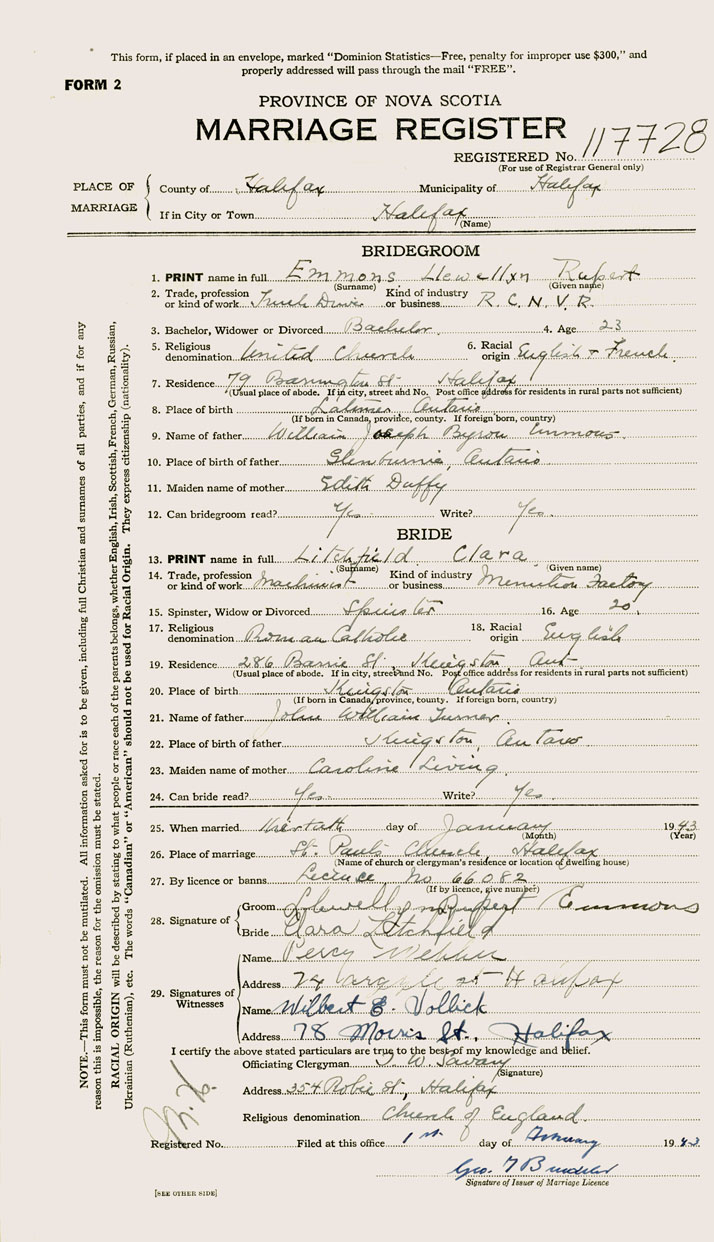 This form, if placed in an envelope, marked “Dominion Statistics—Free, penalty for improper use $300,” and
properly addressed will pass through the mail “FREE”.
FORM 2
PROVINCE OF NOVA SCOTIA
MARRIAGE REGISTER
REGISTERED No. 117728
(For use of Registrar General only)
PLACE OF MARRIAGE
County of Halifax Municipality of Halifax
If in City or Town Halifax
(Name)
BRIDEGROOM
1. PRINT name in full Emmons Llewellyn Rupert
(Surname) (Given name)
2. Trade, profession or kind of work Truck Driver Kind of industry or business R. C. N. V. R.
3. Bachelor, Widower or Divorced Bachelor 4. Age 23
5. Religious denomination United Church 6. Racial origin English + French
7. Residence 79 Barrington St Halifax
(Usual place of abode. If in city, street and No. Post office address for residents in rural parts not sufficient)
8. Place of birth Latimer Ontario
(If born in Canada, province, county. If foreign born, country)
9. Name of father William Joseph Byron Emmons
10. Place of birth of father Glenburnie, Ontario
11. Maiden name of mother Edith Duffy
12. Can bridegroom read? Yes Write? Yes
BRIDE
13. PRINT name in full Litchfield Clara
(Surname) (Given name)
14. Trade, profession or kind of work Machinist Kind of industry or business Munition Factory
15. Spinster, Widow or Divorced Spinster 16. Age 20
17. Religious denomination Roman Catholic 18. Racial origin English
19. Residence 286 Barrie St., Kingston, Ont
(Usual place of abode. If in city, street and No. Post office address for residents in rural parts not sufficient)
20. Place of birth Kingston Ontario
(If born in Canada, province, county. If foreign born, country)
21. Name of father John William Turner
22. Place of birth of father Kingston, Ontario
23. Maiden name of mother Caroline Living
24. Can bride read? Yes Write? Yes
25. When married day of January 1943
(Month) (Year)
26. Place of marriage St. Paul's Church, Halifax
(Name of church or clergyman's residence or location of dwelling house)
27. By licence or banns Licence No. 66082
(If by licence, give number)
28. Signature of
Groom Llewellyn Rupert Emmons
Bride Clara Litchfield
29. Signatures of Witnesses
Name Percy Webber
Address 74 Argyle St Halifax
Name Wilbert E. Vollick
Address 78 Morris St., Halifax
I certify the above stated particulars are true to the best of my knowledge and belief.
Officiating Clergyman T. W. Savary
(Signature)
Address 354 Robie St., Halifax
Religious denomination Church of England
Registered No. Filed at this office 1st day of 1943
Geo.
Signature of Issuer of Marriage Licence
[SEE OTHER SIDE]
NOTE.—This form must not be mutilated. All information asked for is to be given, including full Christian and surnames of all parties, and if for any
reason this is impossible, the reason for the omission must be stated.
RACIAL ORIGIN will be described by stating to what people or race each of the parents belongs, whether English, Irish, Scottish, French, German, Russian,
Ukrainian (Ruthenian), etc. The words “Canadian” or “American” should not be used for Racial Origin. They express citizenship (nationality).